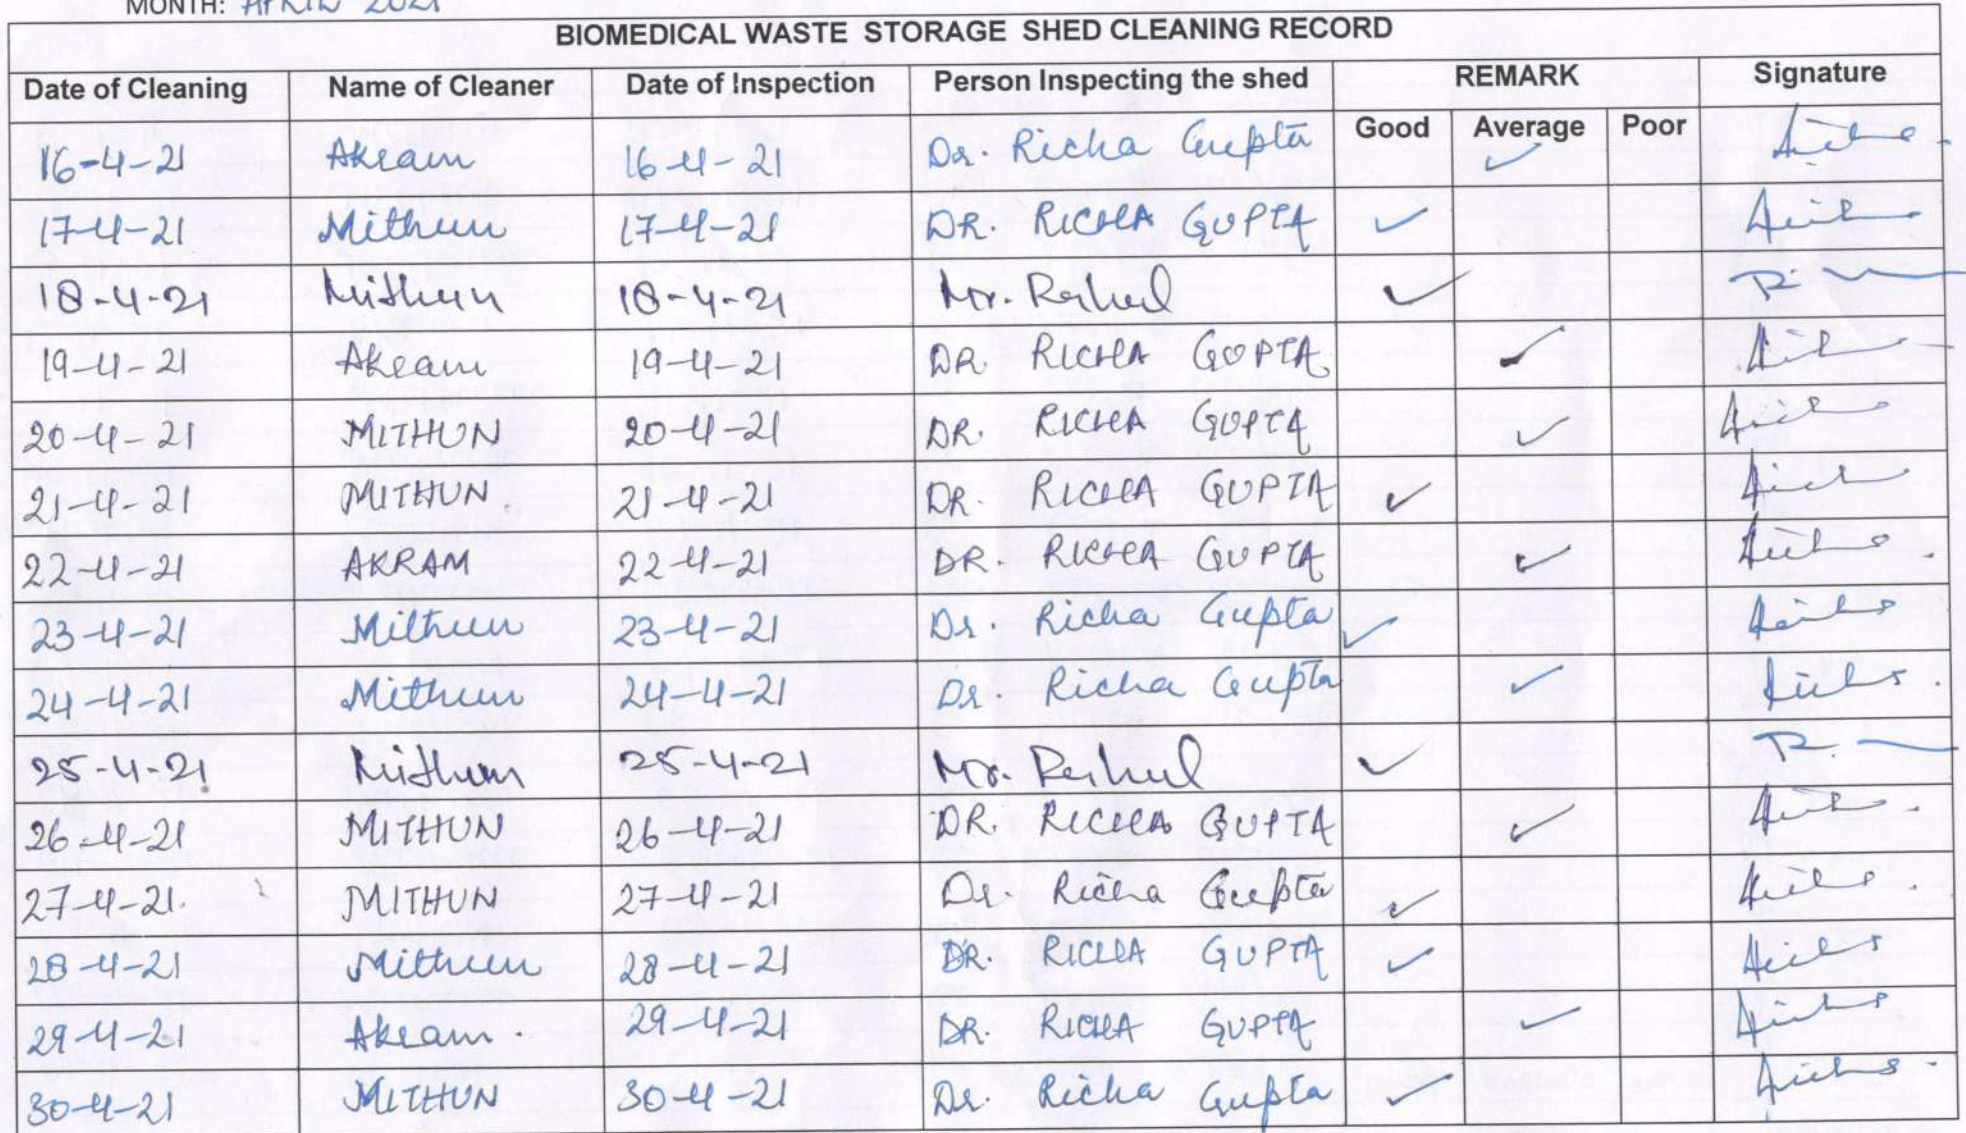 MONTH: APRIL 2021
BIOMEDICAL WASTE STORAGE SHED CLEANING RECORD
Date of Cleaning Name of Cleaner Date of Inspection Person Inspecting the shed REMARK Signature
Good Average Poor
16-4-21 Akram 16-4-21 Dr. Richa Gupta ✓
17-4-21 Mithun 17-4-21 DR. RICHA GUPTA ✓
18-4-21 Mithun 18-4-21 Mr. Rahul ✓
19-4-21 Akram 19-4-21 DR. RICHA GUPTA ✓
20-4-21 MITHUN 20-4-21 DR. RICHA GUPTA ✓
21-4-21 MITHUN. 21-4-21 DR. RICHA GUPTA ✓
22-4-21 AKRAM 22-4-21 DR. RICHA GUPTA ✓
23-4-21 Mithun 23-4-21 Dr. Richa Gupta ✓
24-4-21 Mithun 24-4-21 Dr. Richa Gupta ✓
25-4-21 Mithun 25-4-21 Mr. Rahul ✓
26-4-21 MITHUN 26-4-21 DR. RICHA GUPTA ✓
27-4-21. MITHUN 27-4-21 Dr. Richa Gupta ✓
28-4-21 Mithun 28-4-21 DR. RICHA GUPTA ✓
29-4-21 Akram. 29-4-21 DR. RICHA GUPTA ✓
30-4-21 MITHUN 30-4-21 Dr. Richa Gupta ✓